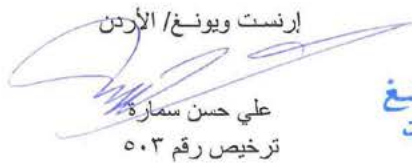 إرنست ويونـغ/ الأردن
علي حسن سمارة
ترخيص رقم ٥٠٣